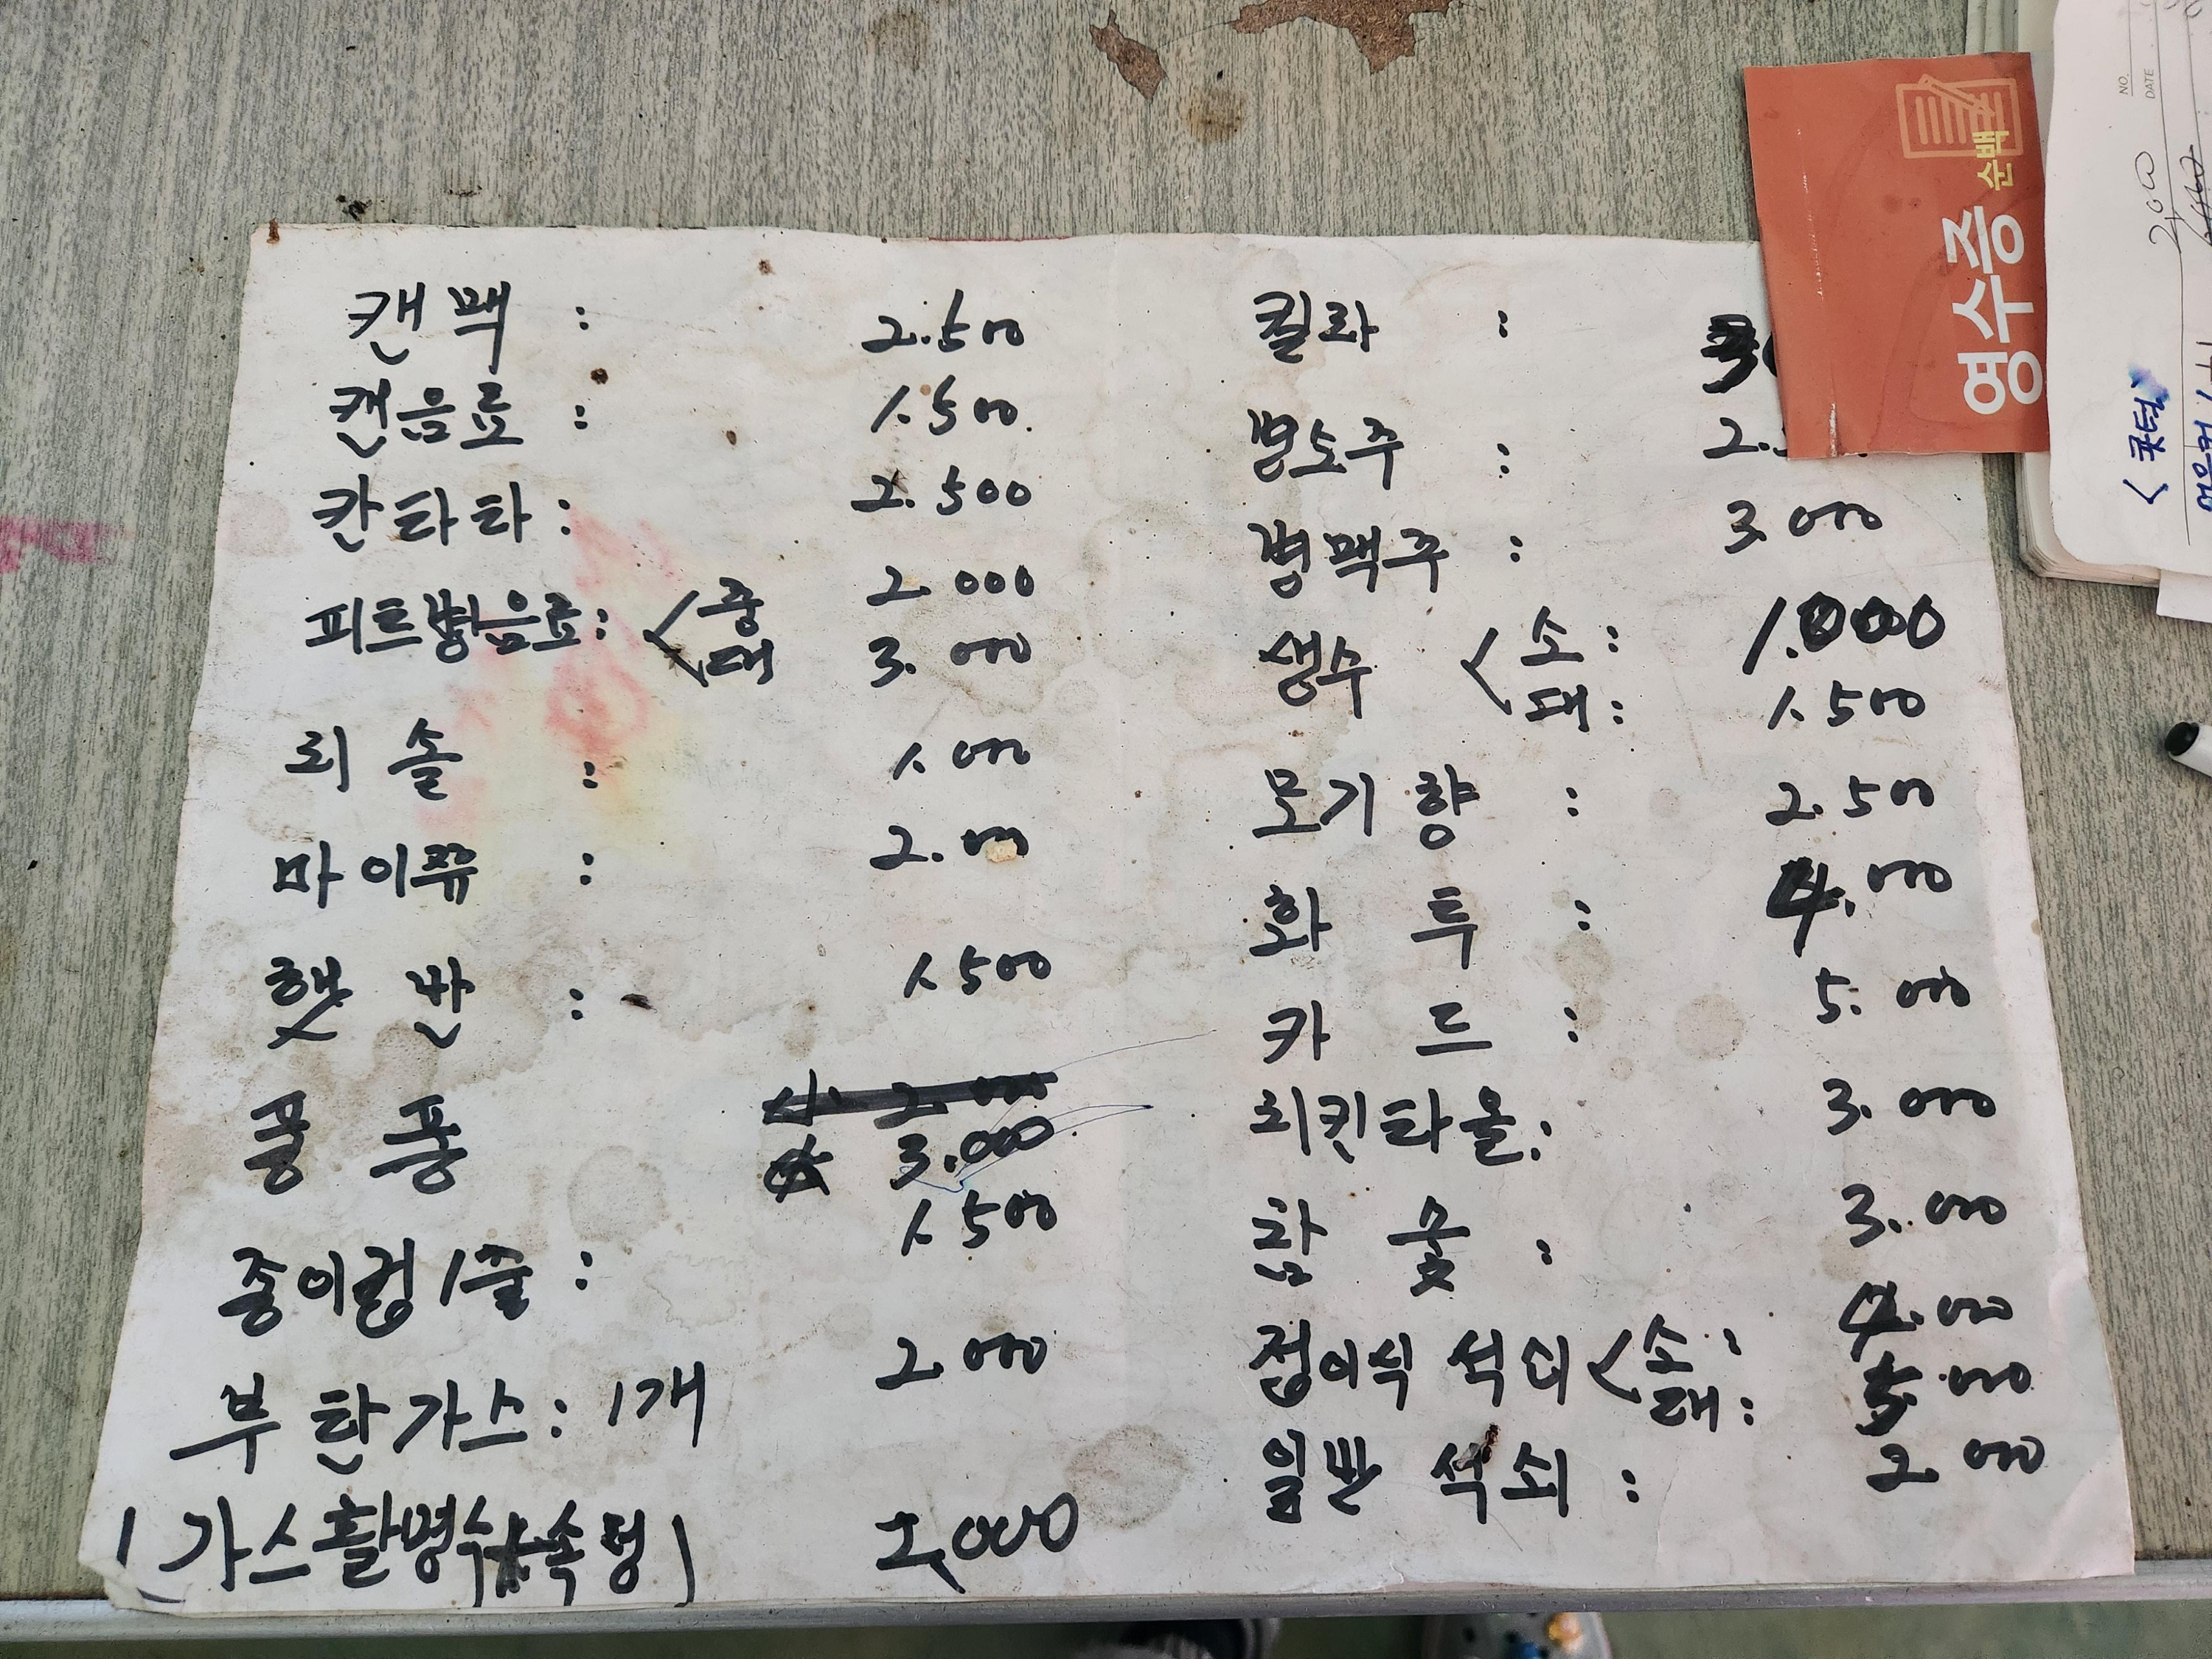 캔맥 : 2.500
캔음료 : 1.500
칸타타 : 2.500
피트병음료 : < 중 2.000
대 3.000
리솔 : 1.000
마이쮸 : 2.000
햇반 : 1.500
퐁퐁 2.000
3.000
종이컵 1줄 : 1.500
부탄가스 : 1개 2.000
(가스활명수 속청) 2,000
킬라 :
병소주 : 2.
병맥주 : 3.000
생수 < 소 : 1.000
대 : 1.500
모기향 : 2.500
화투 : 4.000
카드 : 5.000
키친타올 : 3.000
참숯 : 3.000
접이식 석쇠 < 소 : 4.000
대 : 5.000
일반 석쇠 : 2.000
영수증 순백
NO.
DATE